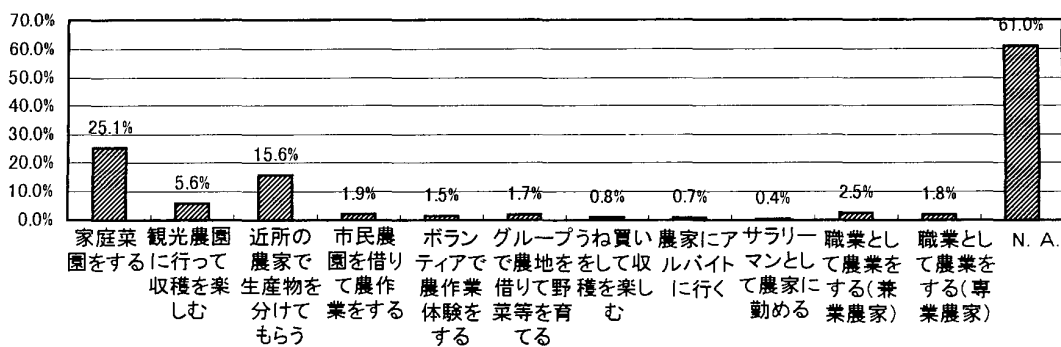 70.0%
60.0%
50.0%
40.0%
30.0%
20.0%
10.0%
0.0%
25.1%
5.6%
15.6%
1.9%
1.5%
1.7%
0.8%
0.7%
0.4%
2.5%
1.8%
61.0%
家庭菜
園をする
観光農園
に行って
収穫を楽
しむ
近所の
農家で
生産物を
分けて
もらう
市民農
園を借り
て農作
業をする
ボラン
ティアで
農作業
体験を
する
グループ
で農地を
借りて野
菜等を育
てる
うね買い
をして収
穫を楽し
む
農家にア
ルバイト
に行く
サラリー
マンとし
て農家に
勤める
職業とし
て農業を
する(兼
業農家)
職業とし
て農業を
する(専
業農家)
N. A.